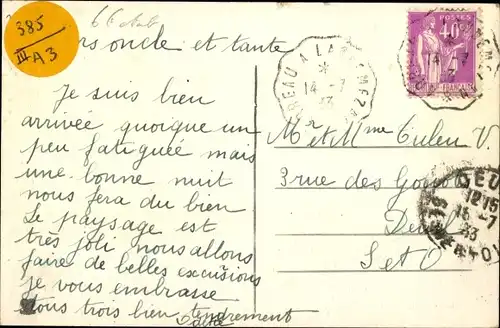 385
III
A3
oncle et tante
Je suis bien
arrivée quoique un
peu fatiguée mais
une bonne nuit
nous fera du bien
Le paysage est
très joli nous allons
faire de belles excusions
je vous embrasse
tous trois bien tendrement
POSTES
40c
14-7
33
Mr et Mme Culeu V.
3 rue des
S et O
DEU
1215
15-7
33